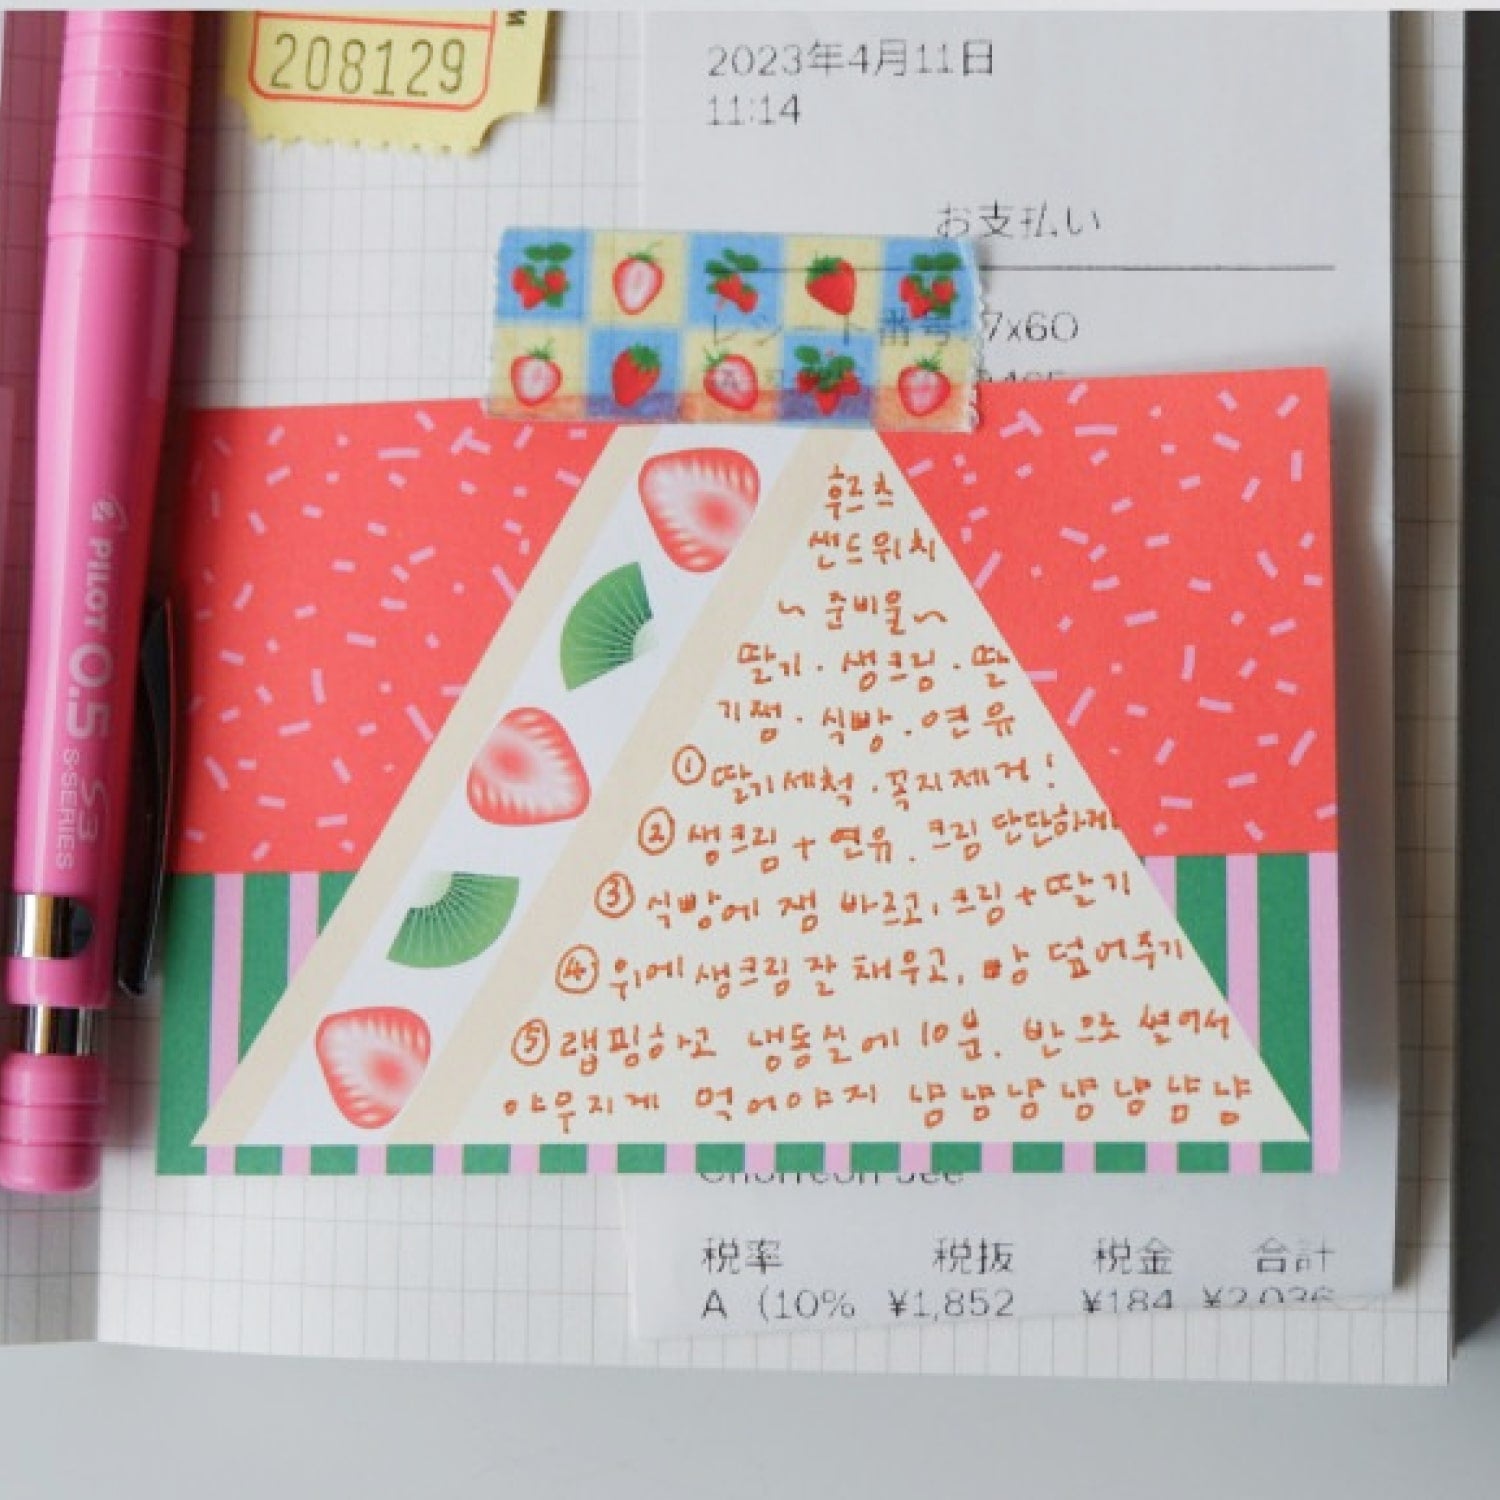 208129
2023年4月11日
11:14
お支払い
レシート番号 7x60
후르츠
샌드위치
~ 준비물 ~
딸기 · 생크림 · 딸
기잼 · 식빵 · 연유
① 딸기세척 · 꼭지제거!
② 생크림 + 연유. 크림 단단하게!
③ 식빵에 잼 바르고, 크림 + 딸기
④ 위에 생크림 잘 채우고, 빵 덮어주기
⑤ 랩핑하고 냉동실에 10분. 반으로 썰어서
야무지게 먹어야지 냠냠냠냠냠냠냠
税率 税抜 税金 合計
A (10% ¥1,852 ¥184 ¥2,036
PILOT 0.5 S3
S SERIES